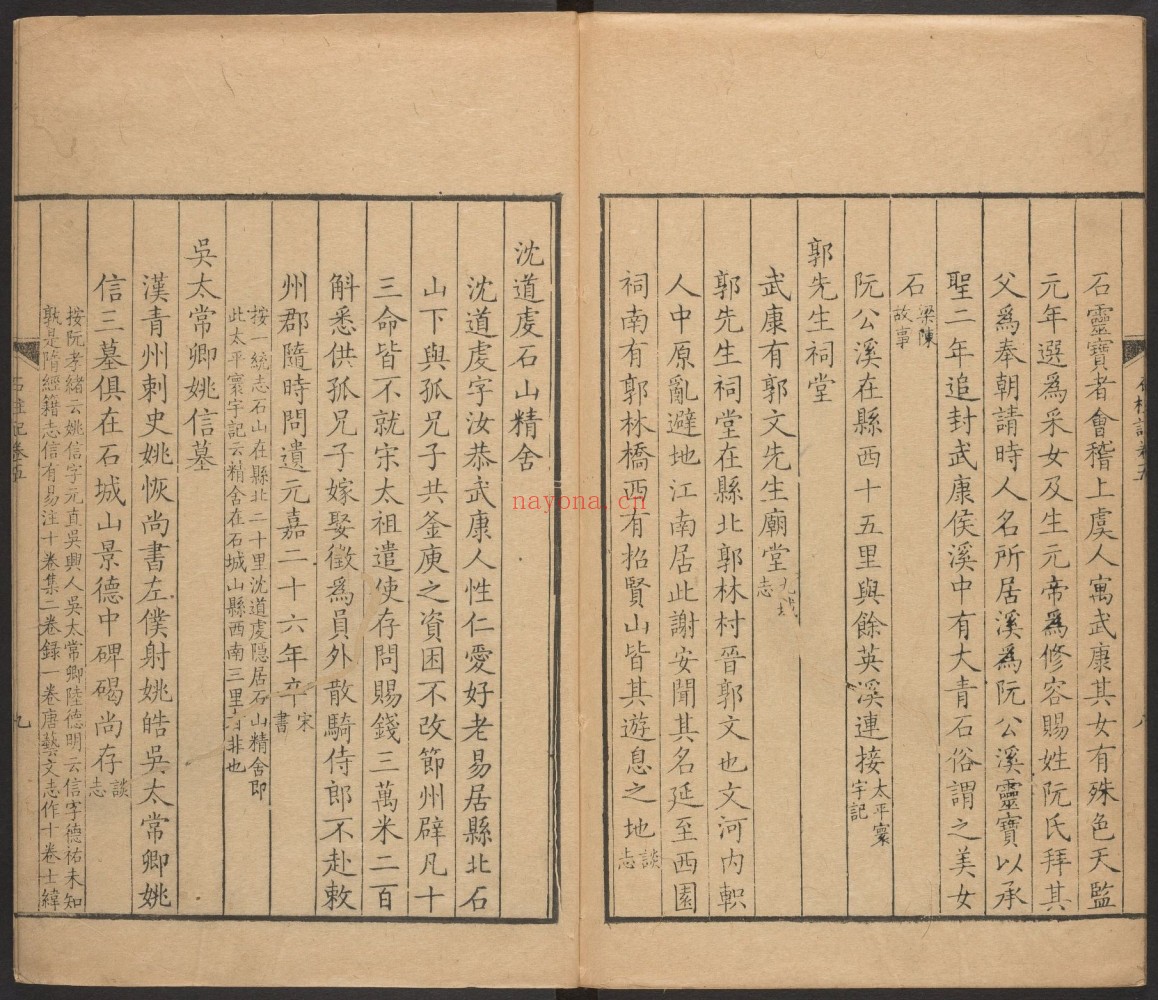 石靈寶者會稽上虞人寓武康其女有殊色天監
元年選爲采女及生元帝爲修容賜姓阮氏拜其
父爲奉朝請時人名所居溪爲阮公溪靈寶以承
聖二年追封武康侯溪中有大青石俗謂之美女
石梁陳故事
阮公溪在縣西十五里與餘英溪連接太平寰宇記
郭先生祠堂
武康有郭文先生廟堂志
郭先生祠堂在縣北郭林村晉郭文也文河内軹
人中原亂避地江南居此謝安聞其名延至西園
祠南有郭林橋西有招賢山皆其遊息之地談志
八
沈道虔石山精舍
沈道虔字汝恭武康人性仁愛好老易居縣北石
山下與孤兄子共釜庾之資困不改節州辟凡十
三命皆不就宋太祖遣使存問賜錢三萬米二百
斛悉供孤兄子嫁娶徵爲員外散騎侍郎不赴敕
州郡隨時問遺元嘉二十六年卒宋書
按一統志石山在縣北二十里沈道虔隱居石山精舍即
此太平寰宇記云精舍在石城山縣西南三里非也
吳太常卿姚信墓
漢青州刺史姚恢尚書左僕射姚皓吳太常卿姚
信三墓俱在石城山景德中碑碣尚存談志
按阮孝緒云姚信字元直吳興人吳太常卿陸德明云信字德祐未知
孰是隋經籍志信有易注十卷集二卷錄一卷唐藝文志作十卷士緯
石柱記卷五
九
nayona.cn